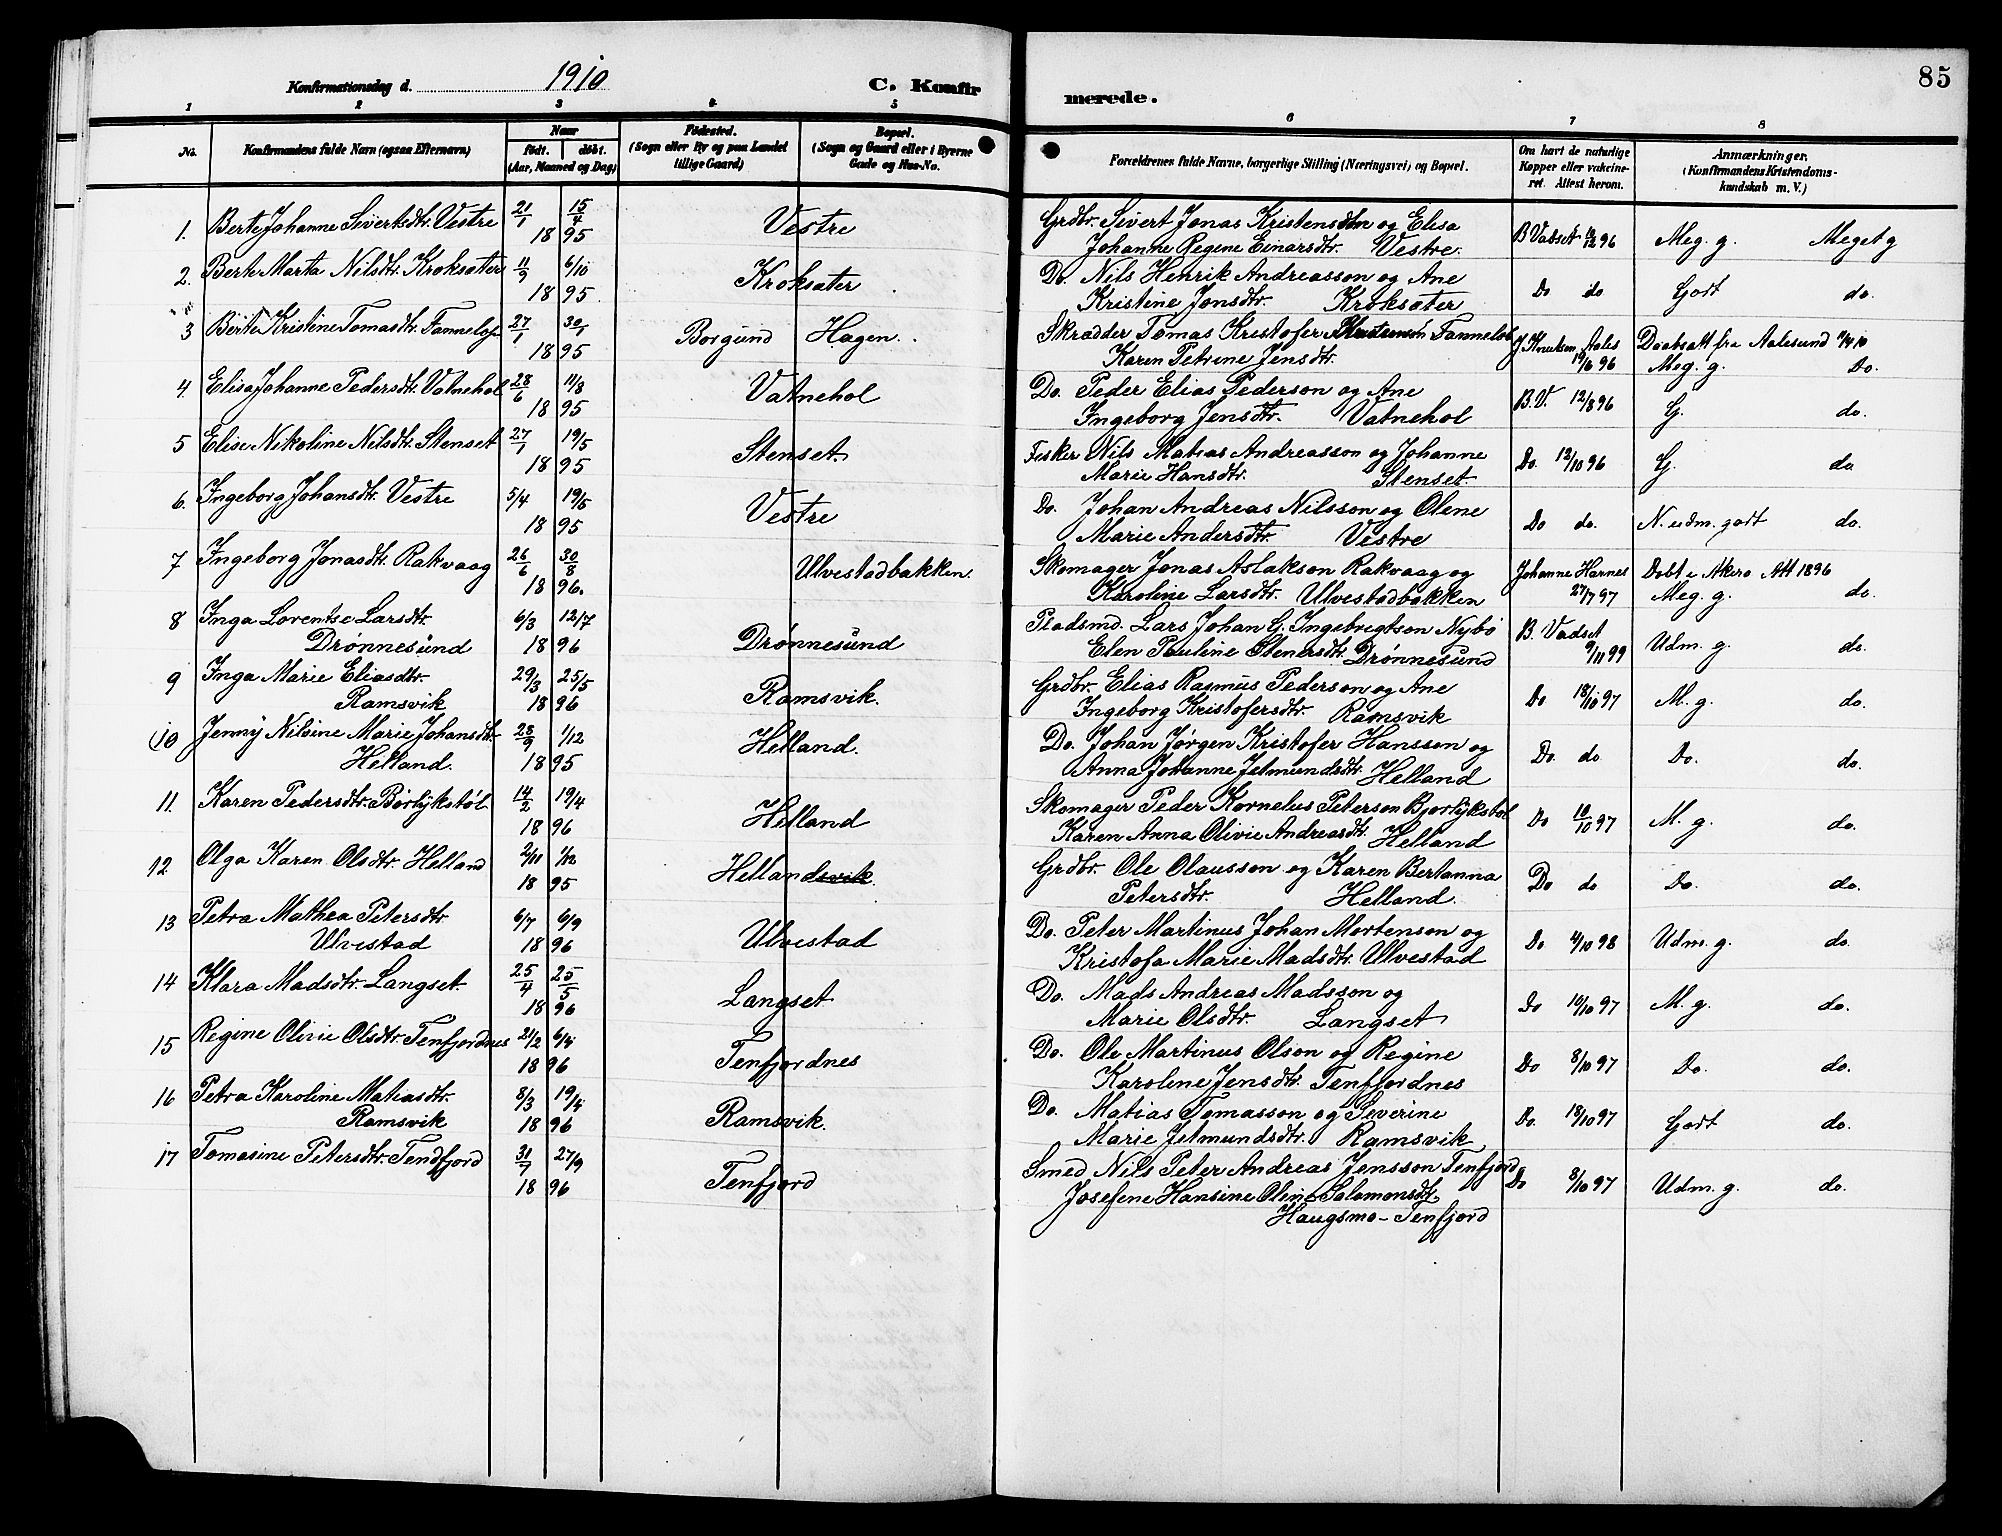 Konfirmationsdag d. 1910
C. Konfirmerede.
85
1 2 3 4 5 6 7 8
No. Konfirmandens fulde Navn (ogsaa Efternavn) Naar Født. døbt. (Aar, Maaned og Dag)
Fødested. (Sogn eller By og paa Landet tillige Gaard)
Bopæl. (Sogn og Gaard eller i Byerne Gade og Hus-No.
Forældrenes fulde Navne, borgerlige Stilling (Næringsvei) og Bopæl.
Om havt de naturlige Kopper eller vakcineret. Attest herom.
Anmærkninger. (Konfirmandens Kristendomskundskab m. V.)
1. Berte Johanne Sivertsdtr. Vestre 21/1 15/4 Vestre Grdbr. Sivert Jonas Kristensdtn og Elisa B Vatset 12/12 96 Meg. g. Meget g
1895 Johanne Regine Einarsdtr. Vestre.
2. Berte Marta Nilsdtr. Kroksæter 11/9 6/10 Kroksæter Do. Nils Henrik Andreasson og Ane Do do Godt do.
1895. Kristine Jonsdtr. Kroksæter
3 Berte Kristine Tomasdtr. 27/1 30/1 Borgund Hagen. Skrædder Tomas Kristofer J. Knutsen Aales Daabsatt fra Aalesund
1895 Karen Petrine Jensdtr. 19/6 96 Meg. g. Do.
4. Elisa Johanne Pedersdtr. Vatnehol 28/6 11/8 Vatnehol Do. Peder Elias Pederson og Ane B.V. 12/8 96 G. do.
1895 Ingeborg Jensdtr. Vatnehol
5 Elise Nikoline Nilsdtr. Stenset 27/1 19/5 Stenset. Fisker Nils Matias Andreasson og Johanne Do. 12/10 96 G. do
1895 Marie Hansdtr. Stenset
6. Ingeborg Johansdtr. Vestre 5/4 19/5 Vestre Do. Johan Andreas Nilsson og Olene Do do. N. udm. godt do.
1895 Marie Andersdtr. Vestre
7 Ingeborg Jonasdtr. Rakvaag 26/6 30/8 Ulvestadbakken. Skomager Jonas Aslakson Rakvaag og Johanne Harnes Døbt i Akerø Att 1896
1896. Karoline Larsdtr. Ulvestadbakken 27/7 97 Meg. g. do.
8 Inga Lorentse Larsdtr. 6/3 12/7 Drønnesund Pladsmd. Lars Johan G. Ingebrigtson Nybø B. Vadset Udm. g. do.
Drønnesund 1896 Elen Pauline Stenersdtr. Drønnesund 9/11 99
9 Inga Marie Eliasdtr. 29/3 25/5 Ramsvik. Grdbr. Elias Rasmus Pederson og Ane Do 18/10 97 M. g. do.
Ramsvik 1896 Ingeborg Kristofersdtr. Ramsvik
10 Jenny Nilsine Marie Johansdtr. 28/9 1/12 Helland. Do. Johan Jørgen Kristofer Hansson og Do. do Do. do.
Helland. 1895 Anna Johanne Jetmundsdtr. Helland
11. Karen Pedersdtr. Børlykstøl 14/2 19/4 Helland Skomager Peder Kornelus Peterson Bjorlykstøl Do 10/10 97 M. g. do.
1896 Karen Anna Olivie Andreasdtr. Helland
12 Olga Karen Olsdtr. Helland 2/11 1/12 Hellandsvik. Grdbr. Ole Olausson og Karen Bertanna Do do Do. do.
1895 Petersdtr. Helland.
13 Petra Mathea Petersdtr. 6/7 6/9 Ulvestad Do. Peter Martinus Johan Mortenson og Do 4/10 98 Udm. g. do.
Ulvestad 1896 Kristofa Marie Madsdtr. Ulvestad
14 Klara Madsdtr. Langset. 25/4 25/5 Langset Do. Mads Andreas Madsson og Do 10/10 97 M. g. do.
1896 Marie Olsdtr. Langset
15 Regine Olivie Olsdtr. Tenfjordnes 21/2 6/4 Tenfjordnes Do. Ole Martinus Olson og Regine Do 8/10 97 Do. do.
1896 Karoline Jensdtr. Tenfjordnes
16 Petra Karoline Matiasdtr. 8/3 19/4 Ramsvik. Do. Matias Tomasson og Severine Do. 18/10 97 Godt do.
Ramsvik 1896 Marie Jetmundsdtr. Ramsvik
17 Tomasine Petersdtr. Tendfjord 31/7 27/9 Tenfjord Smed Nils Peter Andreas Jensson Tenfjord Do 8/10 97 Udm. g. do.
1896 Josefine Hansine Oline Salomonsdtr.
Haugsmo - Tenfjord